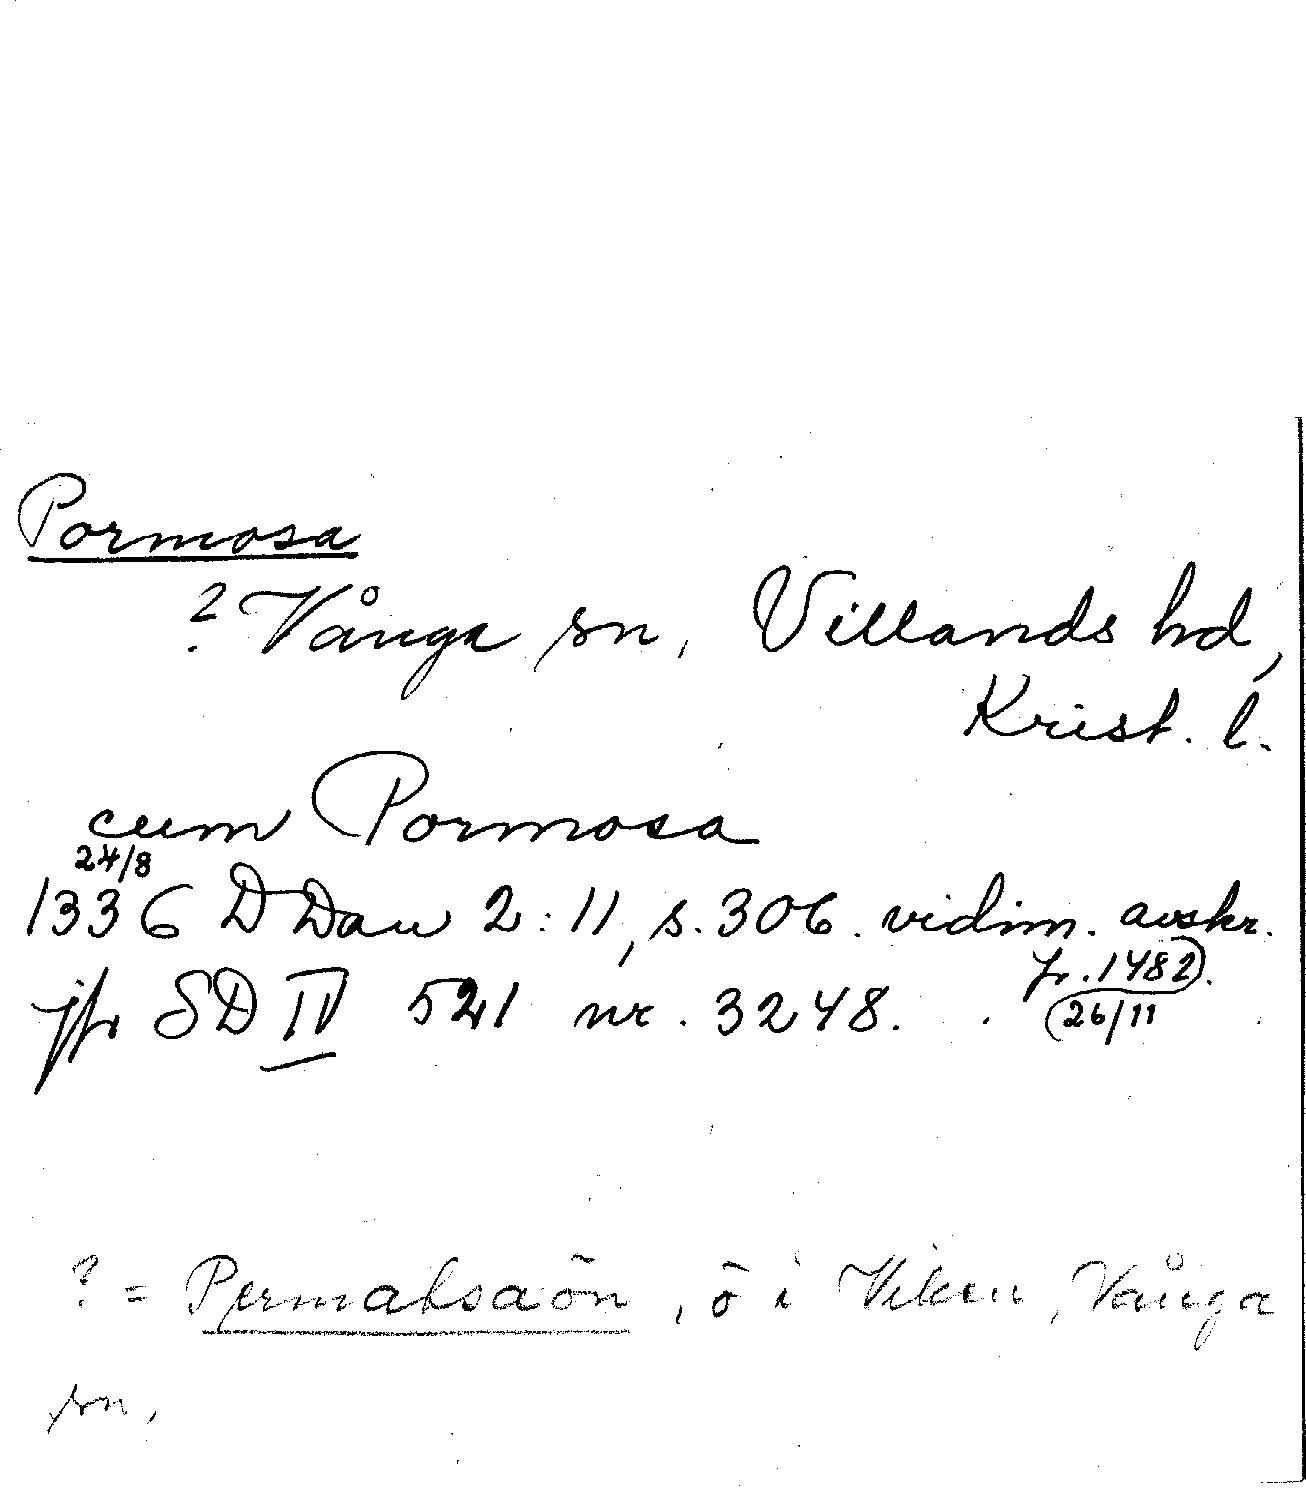 Pormosa
? Vånga sn, Villands hd,
Krist. l.
cum Pormosa
24/8
1336 D Dan 2:11, s. 306. vidim. avskr.
fr. 1482.
26/11
jfr SD IV 521 nr. 3248.
? = Permaksaön, ö i Viken, Vånga
sn,